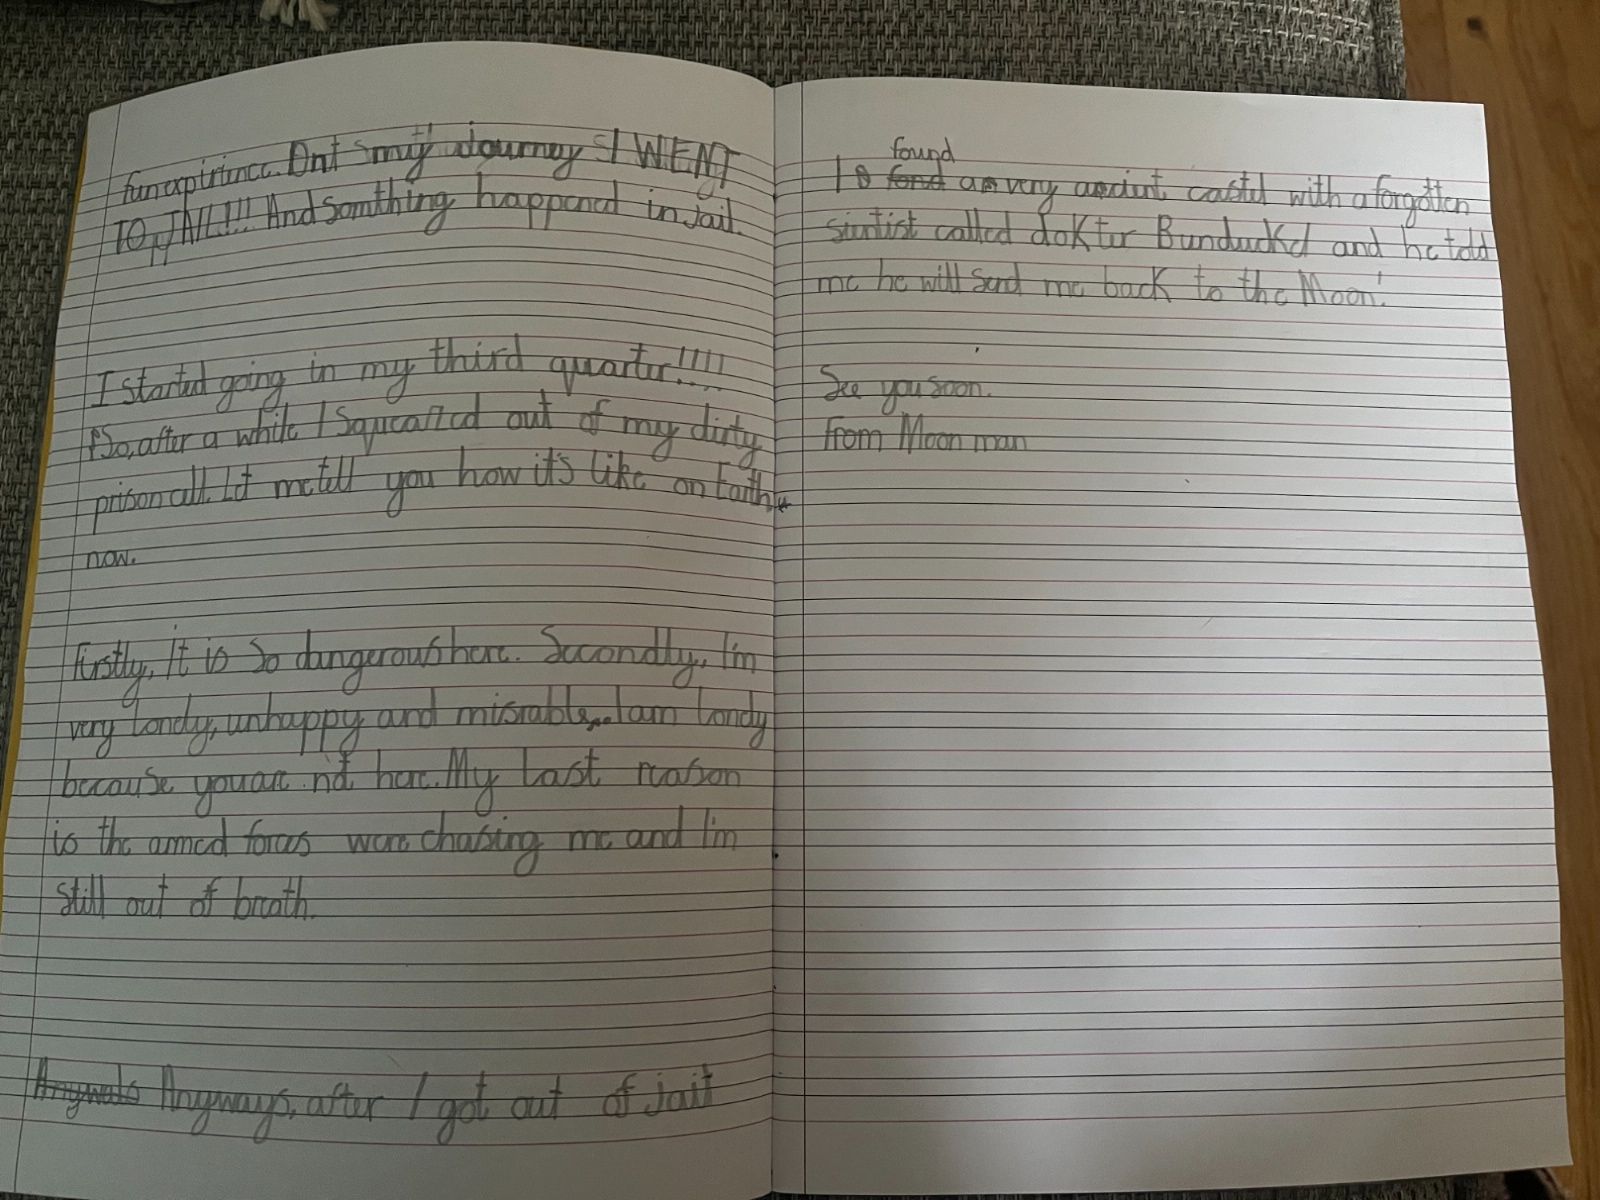 fun expirience. Ont my Journey I WENT
TO JAIL!!! And somthing happened in jail.
I started going in my third quarter!!!!
So, after a while I Squeazed out of my dirty
prison cell. Let me tell you how it's like on Earth
now.
Firstly, It is so dangerous here. Secondly, I'm
very lonely, unhappy and misrable... I am lonely
because you are n't here. My last reason
is the armed forces were chasing me and I'm
still out of breath.
Anywals Anyways, after I got out of jail
found
I fond a very ancient castel with a forgotten
sientist called dokter Bunduckel and he told
me he will send me back to the Moon!
See you soon.
From Moon man